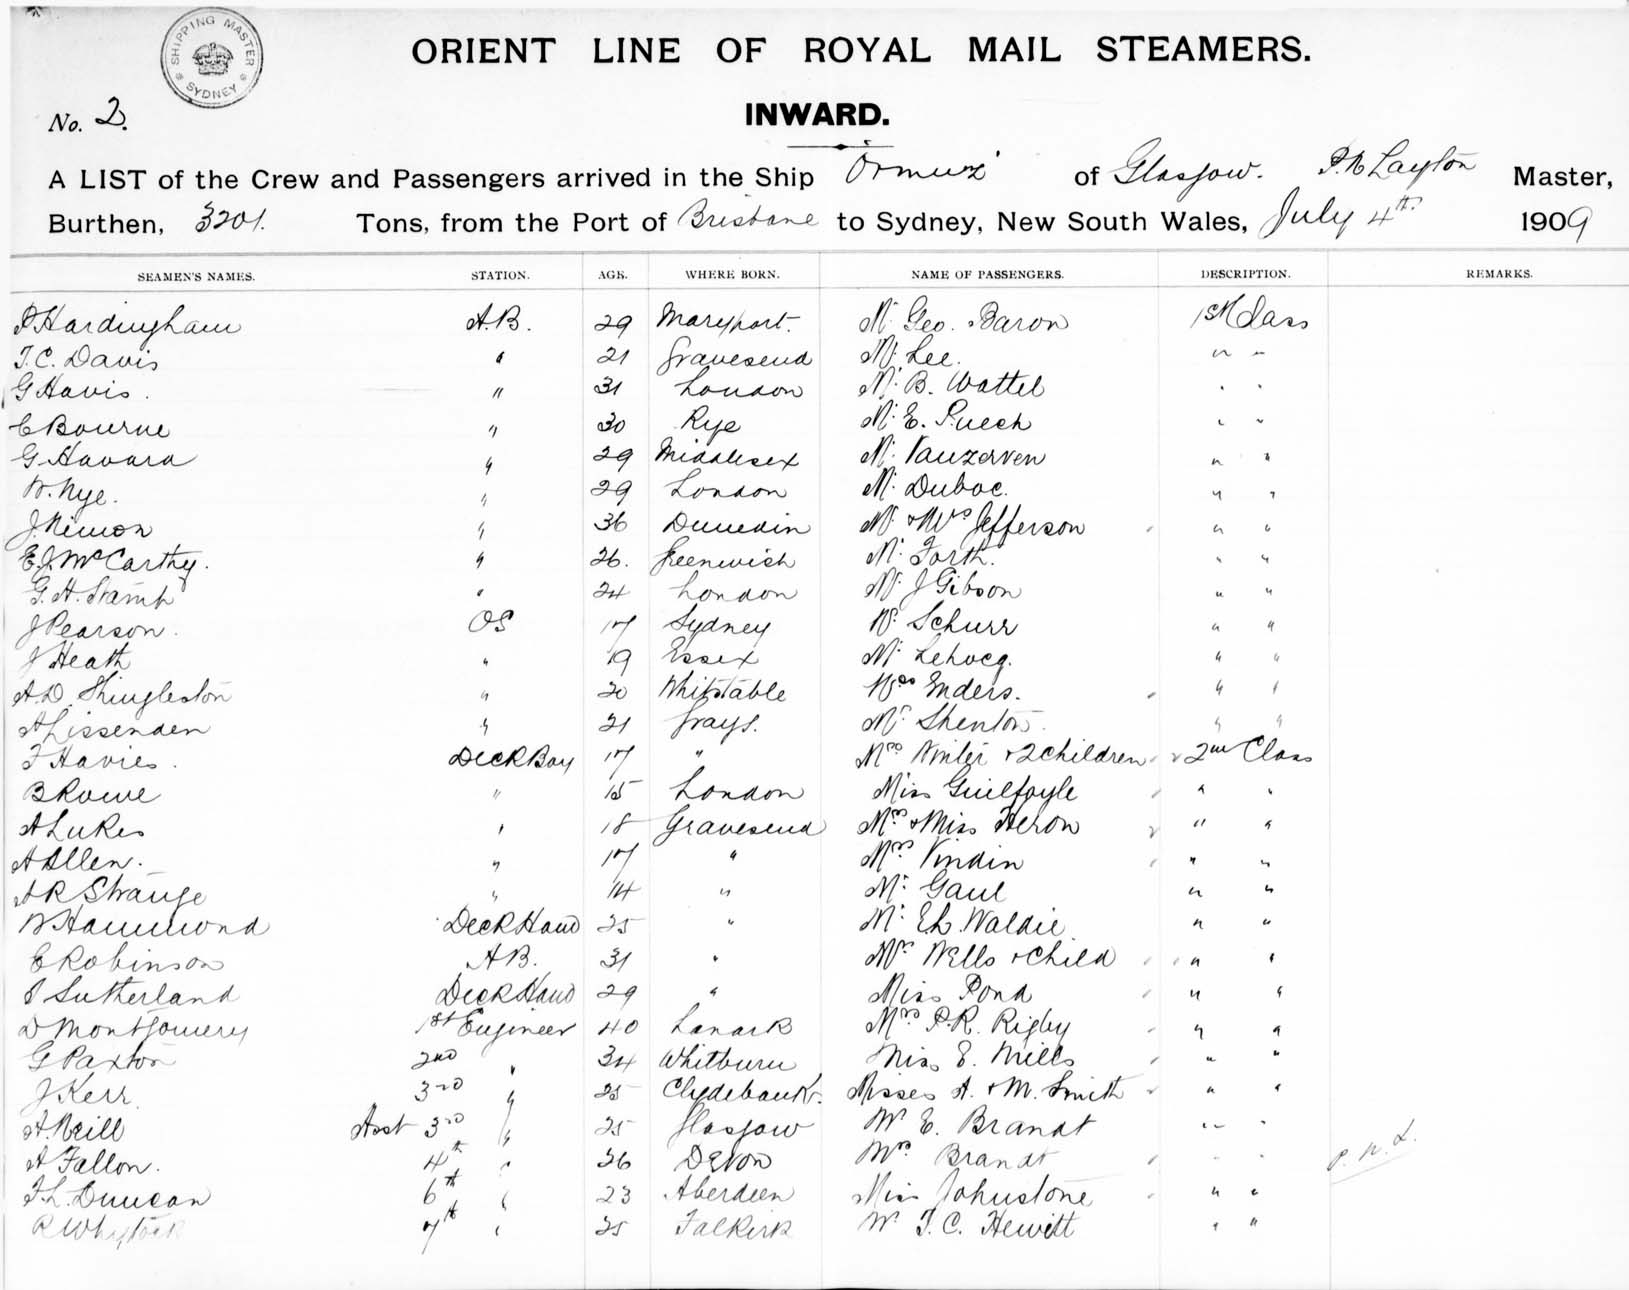 SHIPPING MASTER SYDNEY
ORIENT LINE OF ROYAL MAIL STEAMERS.
INWARD.
No. 2.
A LIST of the Crew and Passengers arrived in the Ship "Ormuz" of Glasgow. Layton Master,
Burthen, 3201. Tons, from the Port of Brisbane to Sydney, New South Wales, July 4th 1909
SEAMEN'S NAMES. STATION. AGE. WHERE BORN. NAME OF PASSENGERS. DESCRIPTION. REMARKS.
P Hardingham A.B. 29 Maryport. Mr Geo. Baron 1st Class
T.C. Davis " 21 Gravesend Mr Lee. " "
G Havis. " 31 London Mr B. Wattel " "
C Bourne " 30 Rye Mr E. Puech " "
G Havard " 29 Middlesex Mr Vanzerven " "
W. Nye. " 29 London Mr Duboc. " "
J. Nimon " 36 Dunedin Mr & Mrs Jefferson " "
E.J. McCarthy. " 26. Greenwich Mr Forth. " "
G.H. Stamp " 24 London Mr J Gibson " "
J Pearson. OS 17 Sydney Mr Schurr " "
J Heath " 19 Essex Mr Lehocq. " "
A.D. Shingleston " 20 Whitstable Mrs Enders. " "
A Lissenden " 21 Grays. Mr Shenton. " "
F Havies. Deck Boy 17 " Mrs Winter & 2 children 2nd Class
B Rowe " 15 London Miss Guilfoyle " "
A Lukes " 18 Gravesend Mrs & Miss Heron " "
A Allen. " 17 " Mrs Vindin " "
A R Strange " 14 " Mr Gaul " "
W Hammond Deck Hand 25 " Mr E.L. Waldie " "
E Robinson A.B. 31 " Mrs Wells & Child " "
P Sutherland Deck Hand 29 " Miss Pond " "
D Montgomery 1st Engineer 40 Lanark Mrs P.R. Rigby " "
G Paxton 2nd " 34 Whitburn Miss E. Mills " "
J Kerr. 3rd " 25 Clydebank. Misses A. & M. Smith " "
A. Neill Asst 3rd " 25 Glasgow Mr E. Brandt " "
A Fallon. 4th " 26 Devon Mrs Brandt " "
F.L. Duncan 6th " 23 Aberdeen Miss Johnstone " "
R Whytock 7th " 25 Falkirk Mr T.C. Hewitt " "